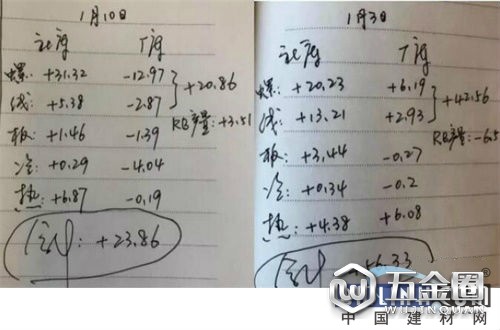 1月10日
社库 厂库
螺: +31.32 -12.97
+20.86
线: +5.38 -2.87
RB产量: +3.51
板: +1.46 -1.39
冷: +0.29 -4.04
热: +6.87 -0.19
合计: +23.86
1月3日
社库 厂库
螺: +20.23 +6.19
+42.56
线: +13.21 +2.93
RB产量: -6.5
板: +3.44 -0.27
冷: +0.34 -0.2
热: +4.38 +6.08
合计
五金圈
WUJINQUAN.COM
中国建材网